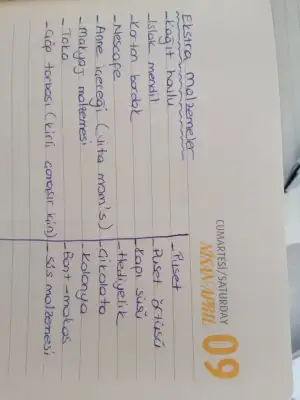 CUMARTESİ/SATURDAY
NİSAN/APRIL
09
Ekstra malzemeler
-Kağıt havlu
-Islak mendil
-Karton bardak
-Nescafe
-Anne içeceği (Vita mom's)
-Makyaj malzemesi
-Toka
-Çöp torbası (kirli çamaşır için)
-Puset
Puset örtüsü
-Kapı süsü
-Hediyelik
-Çikolata
-Kolonya
-Bant-makas
-Süs malzemesi